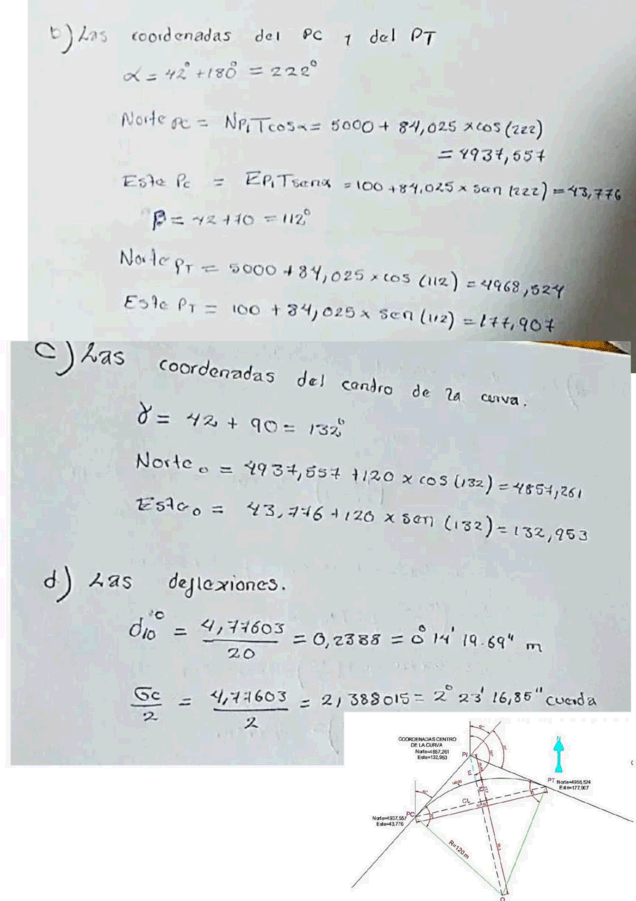 b) Las coordenadas del PC y del PT
α = 42° + 180° = 222°
Norte PC = NPi Tcosα = 5000 + 84,025 x cos (222)
= 4937,557
Este Pc = EPi Tsenα = 100 + 84,025 x sen (222) = 43,776
β = 42 + 70 = 112°
Norte PT = 5000 + 84,025 x cos (112) = 4968,524
Este PT = 100 + 84,025 x sen (112) = 177,907
c) Las coordenadas del centro de la curva.
γ = 42 + 90 = 132°
Norte o = 4937,557 + 120 x cos (132) = 4857,261
Este o = 43,776 + 120 x sen (132) = 132,953
d) Las deflexiones.
d10 = 4,77603 / 20 = 0,2388 = 0° 14' 19.69" m
Gc / 2 = 4,77603 / 2 = 2,388015 = 2° 23' 16,85" cuerda
COORDENADAS CENTRO
DE LA CURVA
Norte=4857,261
Este=132,953
PI
PT
Norte=4968,524
Este=177,907
PC
Norte=4937,557
Este=43,776
CL
R=120 m
O